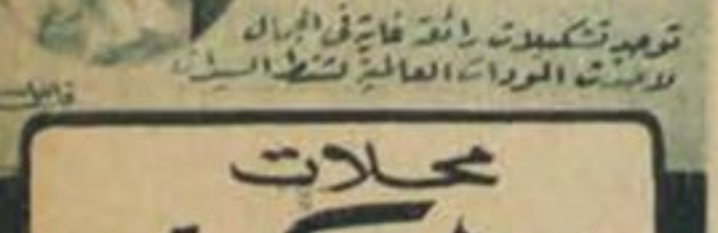 توجد تشكيلات رائعة غاية في الجمال
لأحدث المودات العالمية لشنط السيدات
محلات